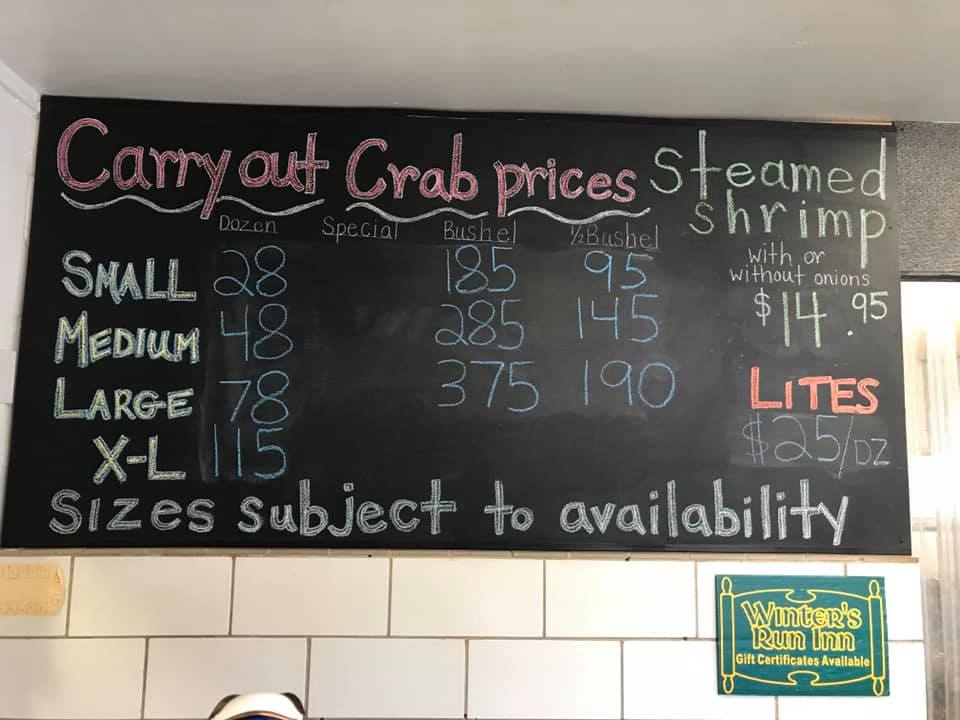 Carry out Crab prices
Dozen Special Bushel ½Bushel
SMALL 28 185 95
MEDIUM 48 285 145
LARGE 78 375 190
X-L 115
Sizes subject to availability
Steamed
shrimp
with or
without onions
$14.95
LITES
$25/DZ
WINTER'S
RUN INN
Gift Certificates Available